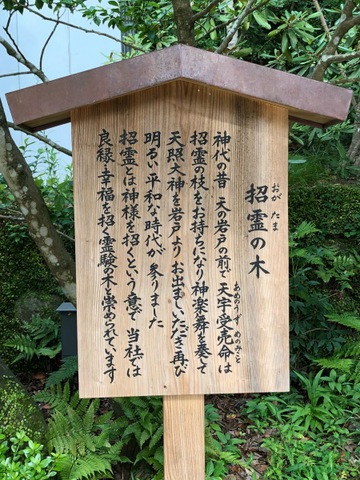 招霊の木
おがたま
神代の昔 天の岩戸の前で 天宇受売命は
あめのうずめのみこと
招霊の枝をお持ちになり神楽舞を奏て
天照大神を岩戸より お出ましいただき再び
明るい平和な時代が 参りました
招霊とは神様を招くという意で 当社では
良縁・幸福を招く霊験の木と崇められています